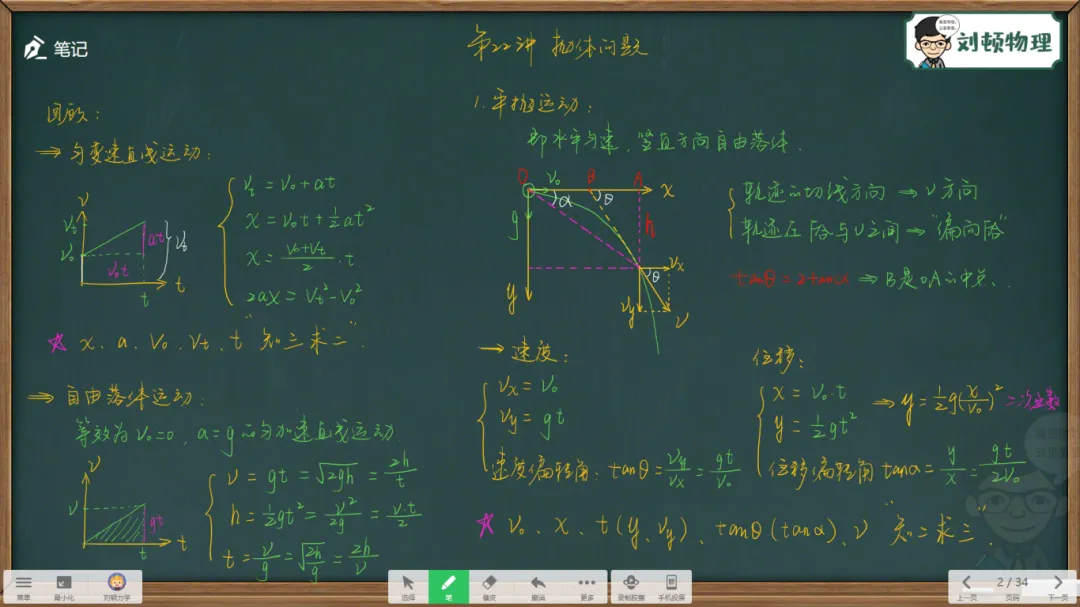 笔记
第22讲 抛体问题
刘顿物理
回顾:
⇒ 匀变速直线运动:
v
vt
v0
at
vt
v0t
t
t
vt = v0 + at
x = v0t + ½at²
x = (v0+vt)/2 · t
2ax = vt² - v0²
☆ x、a、v0、vt、t "知三求二".
⇒ 自由落体运动:
等效为 v0=0, a=g 的匀加速直线运动.
v
v
gt
t
t
v = gt = √2gh = 2h/t
h = ½gt² = v²/2g = v·t/2
t = v/g = √(2h/g) = 2h/v
1. 平抛运动:
即水平匀速, 竖直方向自由落体.
O
v0
B
A
x
α
θ
g
h
vx
θ
y
vy
v
轨迹的切线方向 → v方向
轨迹在F合与v之间 → "偏向F合"
tanθ = 2tanα ⇒ B是OA的中点.
→ 速度:
vx = v0
vy = gt
速度偏转角: tanθ = vy/vx = gt/v0
位移:
x = v0·t
y = ½gt²
⇒ y = ½g(x/v0)² 二次函数
位移偏转角 tanα = y/x = gt/2v0
☆ v0、x、t(y、vy)、tanθ(tanα)、v "知二求三".
菜单
最小化
刘顿力学
选择
笔
橡皮
撤消
更多
录制胶囊
手机投屏
上一页
2 / 34
页码
下一页